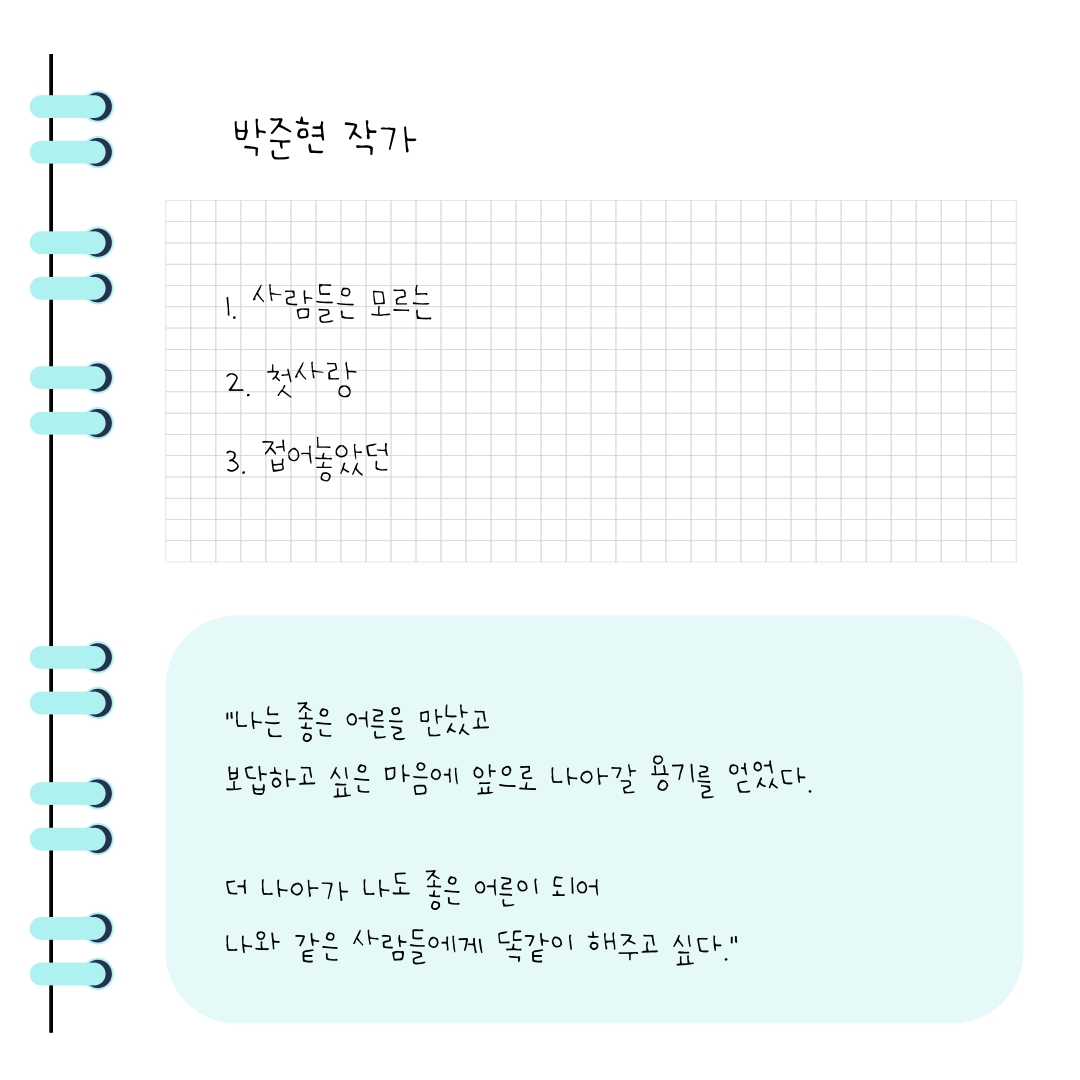 박준현 작가
1. 사람들은 모르는
2. 첫사랑
3. 접어놓았던
"나는 좋은 어른을 만났고
보답하고 싶은 마음에 앞으로 나아갈 용기를 얻었다.
더 나아가 나도 좋은 어른이 되어
나와 같은 사람들에게 똑같이 해주고 싶다."